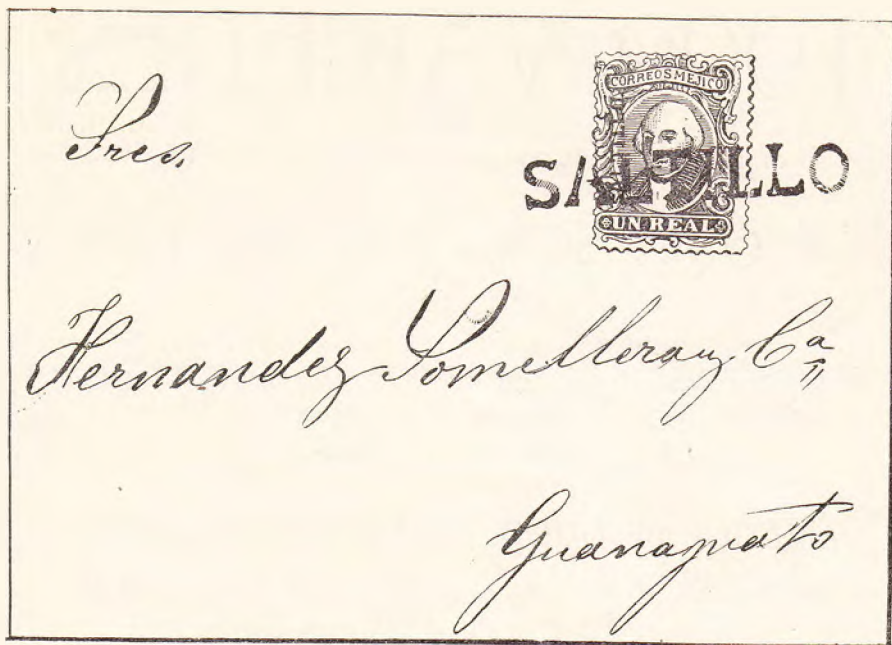 Sres.
CORREOS MEJICO
SALTILLO
UN REAL
Hernandez Somellera y Ca
Guanajuato